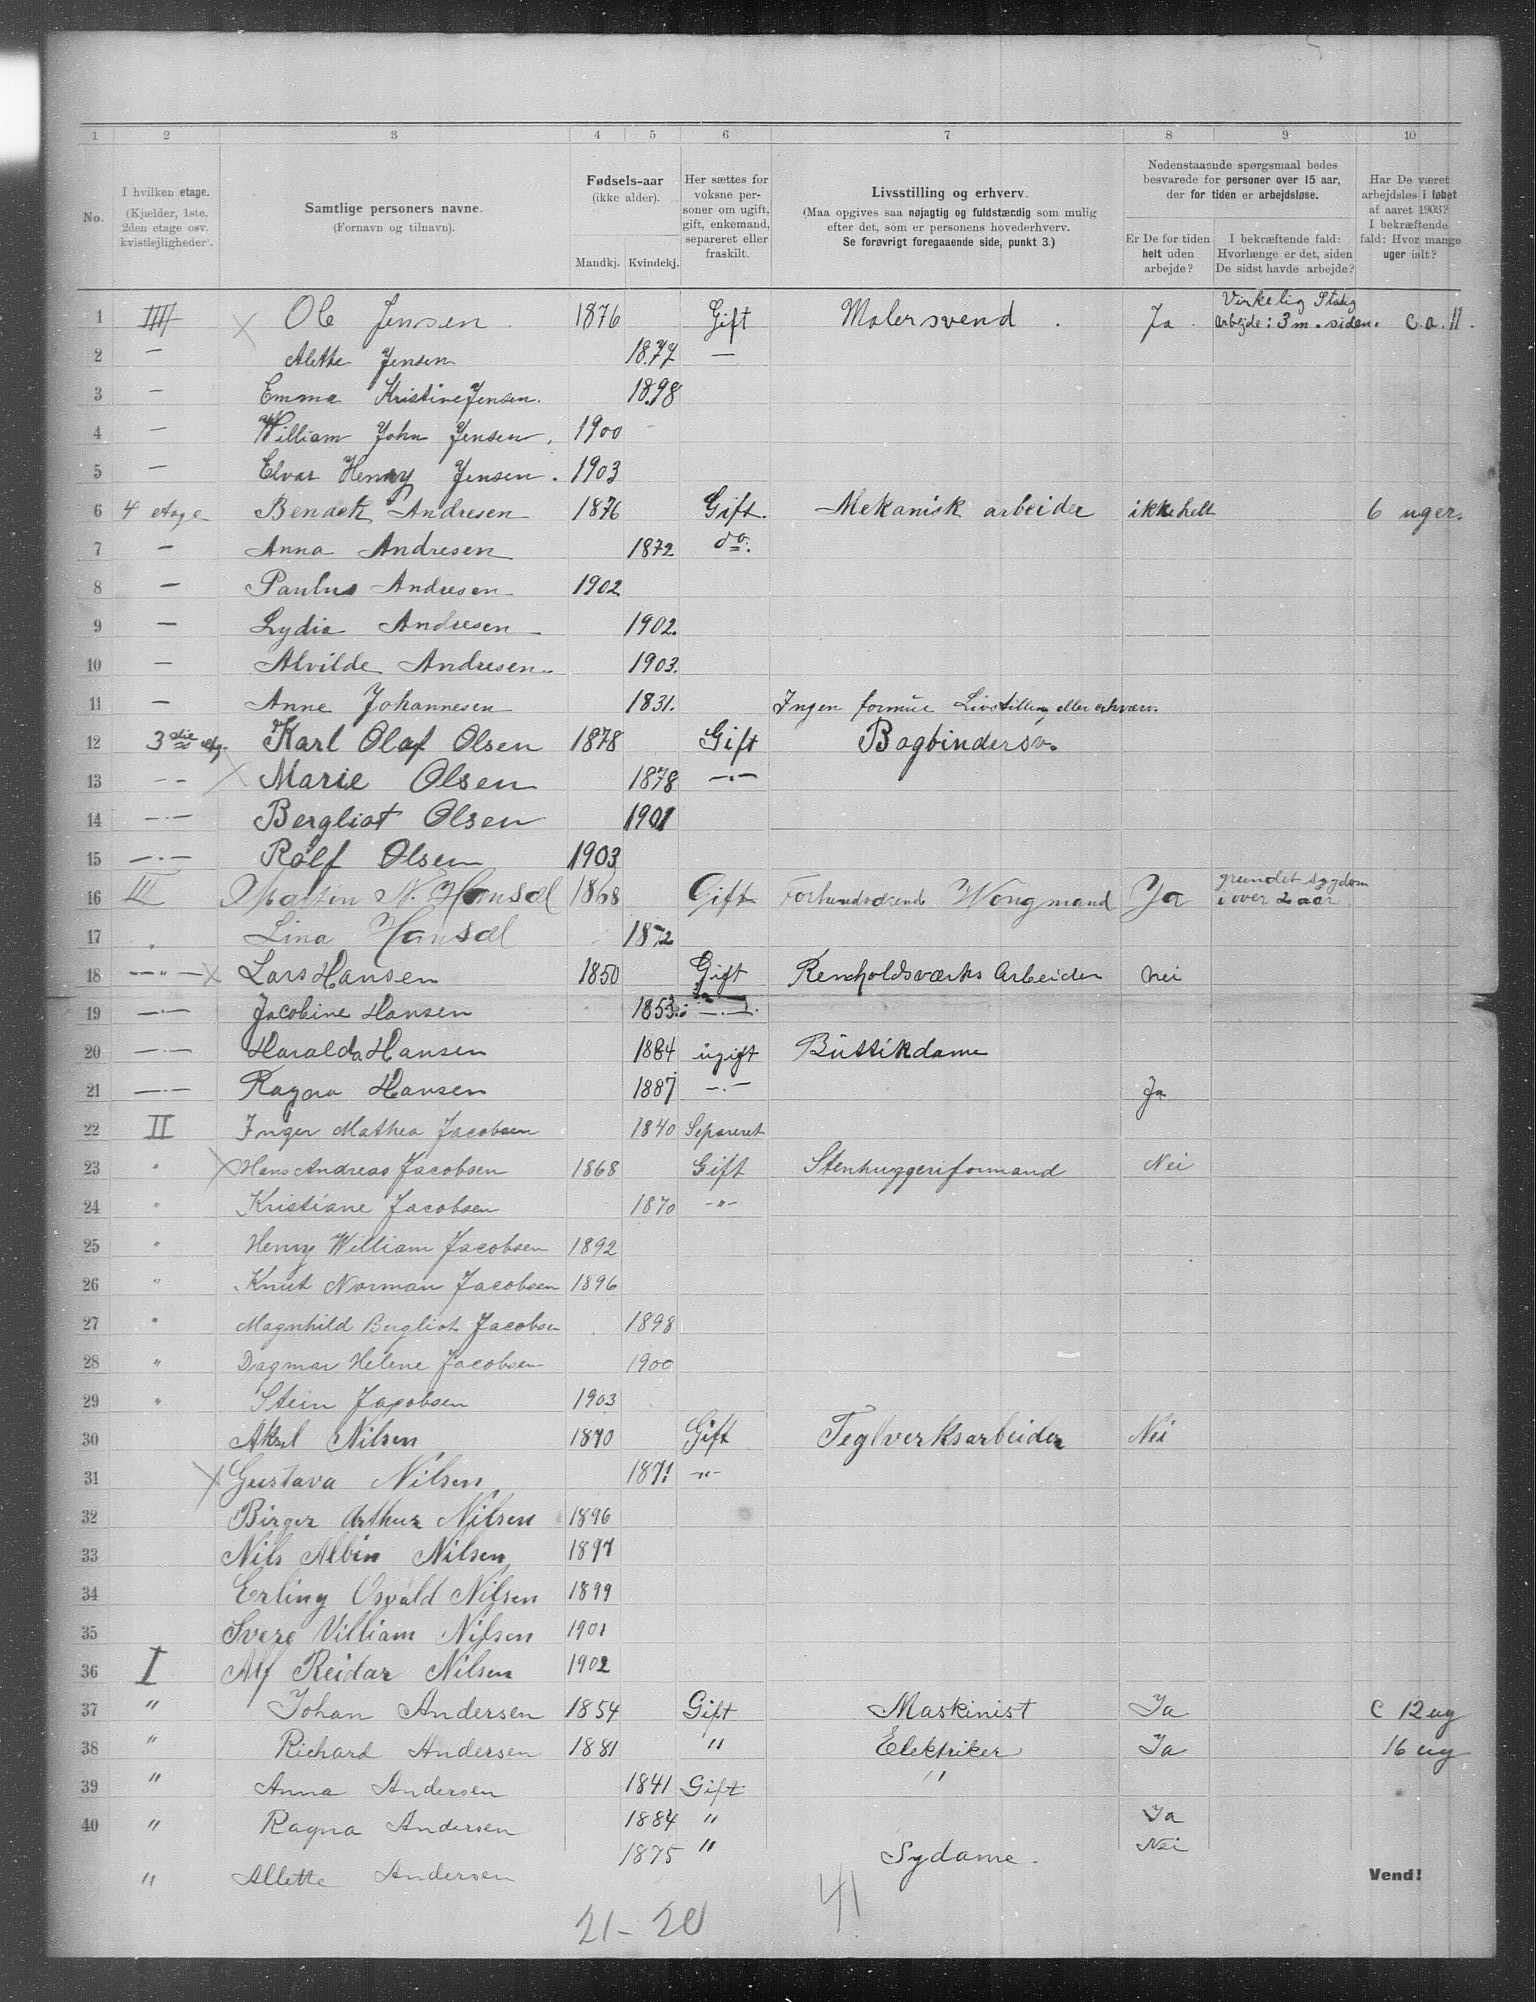 1 2 3 4 5 6 7 8 9 10
No. I hvilken etage. (Kjælder, 1ste, 2den etage osv. kvistlejligheder). Samtlige personers navne. (Fornavn og tilnavn). Fødsels-aar (ikke alder). Mandkj. Kvindekj. Her sættes for voksne personer om ugift, gift, enkemand, separeret eller fraskilt. Livsstilling og erhverv. (Maa opgives saa nøjagtig og fuldstændig som mulig efter det, som er personens hovederhverv. Se forøvrigt foregaaende side, punkt 3.) Nedenstaaende spørgsmaal bedes besvarede for personer over 15 aar, der for tiden er arbejdsløse. Er De for tiden helt uden arbejde? I bekræftende fald: Hvorlænge er det, siden De sidst havde arbejde? Har De været arbejdsløs i løbet af aaret 1903? I bekræftende fald: Hvor mange uger ialt?
1 IIII Ole Jensen. 1876 Gift Malersvend. Ja. Virkelig Stadig arbejde: 3 m. siden. c.a. 11.
2 — Alette Jensen 1877 —
3 — Emma Kristine Jensen. 1898
4 — William John Jensen. 1900
5 — Elvar Henry Jensen. 1903
6 4 etage Andresen 1876 Gift. Mekanisk arbeider ikke helt 6 uger.
7 — Anna Andresen 1872 do.
8 — Paulus Andresen 1902
9 — Lydia Andresen 1902.
10 — Alvilde Andresen 1903.
11 — Anne Johannesen 1831. Ingen formue Livstilling eller erhværv.
12 3die etg. Karl Olaf Olsen 1878 Gift Bogbindersv.
13 - - Marie Olsen 1878 —·—
14 —·— Bergliot Olsen 1901
15 —·— Rolf Olsen 1903
16 III N. Hansæl 1868 Gift Forhenværende Wongmand Ja grundet sygdom i over 2 aar
17 " Lina Hansæl 1872
18 —"— Lars Hansen 1850 Gift Renholdsværks Arbeider nei
19 —·— Jacobine Hansen 1853 —·—
20 —·— Haralda Hansen 1884 ugift Buttikdame
21 —·— Ragna Hansen 1887 —·— Ja
22 II Inger Mathea Jacobsen 1840 Separeret
23 " Hans Andreas Jacobsen 1868 Gift Stenhuggeriformand Nei
24 " Kristiane Jacobsen 1870 —"—
25 " Henry William Jacobsen 1892
26 " Knut Norman Jacobsen 1896
27 " Magnhild Bergliot Jacobsen 1898
28 " Dagmar Helene Jacobsen 1900
29 " Stein Jacobsen 1903
30 Aksel Nilsen 1870 Gift Teglverksarbeider Nei
31 Gustava Nilsen 1871 —"—
32 Birger Arthur Nilsen 1896
33 Nils Albin Nilsen 1897
34 Erling Osvald Nilsen 1899
35 Svere Villiam Nilsen 1901
36 I Alf Reidar Nilsen 1902
37 " Johan Andersen 1854 Gift Maskinist Ja c 12 ug
38 " Richard Andersen 1881 " Elektriker Ja 16 ug
39 " Anna Andersen 1841 Gift "
40 " Ragna Andersen 1884 " Ja
" Allette Andersen 1875 " Sydame. Nei
Vend!
21 - 20 41